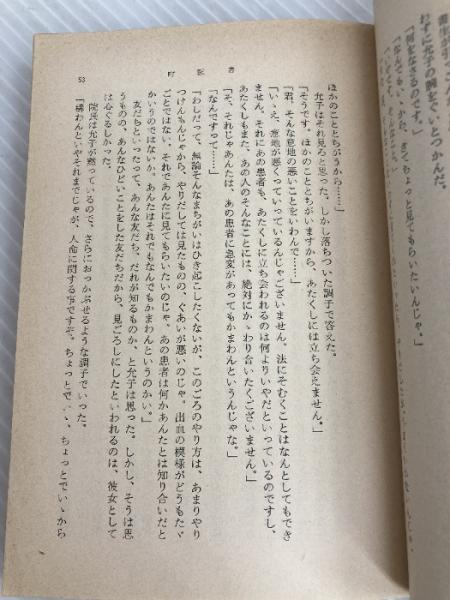 書生が引っこ
わずに允子の腕をぐいとつかんだ。
「何をなさるのです。」
「なんでもいい、かた、きてちょっと見てもらいたいんじゃ。」
ほかのこととちがうから……」
允子はそれ見ろと思った。しかし落ちついた調子で答えた。
「そうです。ほかのこととちがいますから、あたくしには立ち会えません。」
「君、そんな意地の悪いことをいわんで……」
「いゝえ、意地が悪くっていっているんじゃございません。法にそむくことはなんとしてもでき
ません。それにあの患者も、あたくしに立ち会われるのは何よりいやだといっているのですし、
あたくしもまた、あの人のそんなことには、絶対にかゝわり合いたくございません。」
「そ、それじゃあんたは、あの患者に急変があってもかまわんというんじゃな。」
「なんですって……」
「わしだって、無論そんなまちがいはひき起こしたくないが、このごろのやり方は、あまりやり
つけんもんじゃから、やりだしては見たものの、ぐあいが悪いのじゃ。出血の模様がどうもたゞ
ごとではない。それであんたに見てもらいたいのじゃ。あの患者は何かあんたとは知り合いだと
かいうのではないか、あんたはそれでもなんでもかまわんというのかい。」
友だちといったって、あんな友だち、だれが知るものか、と允子は思った。しかし、そうは思
うものの、あんなひどいことをした友だちだから、見ごろしにしたといわれるのは、彼女として
は心ぐるしかった。
院長は允子が黙っているので、さらにおっかぶせるような調子でいった。
「構わんといやそれまでじゃが、人命に関する事ですぞ。ちょっとでいゝ、ちょっとでいゝから
53